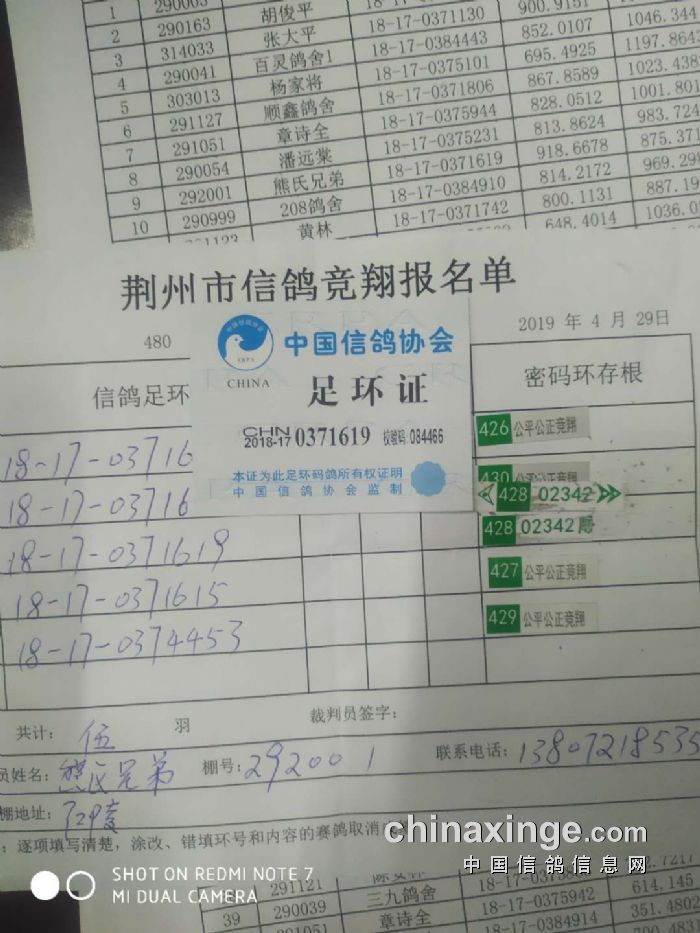 1 290003 胡俊平 18-17-0371130 900.9151
2 290163 张大平 18-17-0384443 852.0107 1046.344
3 314033 百灵鸽舍1 18-17-0375101 695.4925 1197.8643
4 290041 杨家将 18-17-0371806 867.8589 1023.438
5 303013 顺鑫鸽舍 18-17-0375944 828.0512 1001.801
6 291127 章诗全 18-17-0375231 813.8624 983.724
7 291051 潘远棠 18-17-0371619 918.6678 875.371
8 290054 熊氏兄弟 18-17-0384910 814.2172 969.295
9 292001 208鸽舍 18-17-0371742 800.1131 887.19
10 290999 黄林 648.4014 1036.0
荆州市信鸽竞翔报名单
480
2019 年 4 月 29日
信鸽足环
密码环存根
中国信鸽协会
CHINA
足环证
CHN
2018-17 0371619 校验码: 084466
本证为此足环码鸽所有权证明
中国信鸽协会监制
18-17-03716
426 公平公正竞翔
18-17-03716
430 公平公正竞翔
428 02342
18-17-0371619
428 02342
18-17-0371615
427 公平公正竞翔
18-17-0374453
429 公平公正竞翔
共计: 伍 羽 裁判员签字:
员姓名: 熊氏兄弟 棚号: 292001 联系电话: 13807218535
棚地址: 江陵
: 逐项填写清楚, 涂改、错填环号和内容的赛鸽取消
chinaxinge.com
中国信鸽信息网
SHOT ON REDMI NOTE 7
MI DUAL CAMERA
291121 18-17-03758 .7217
39 290039 三九鸽舍 18-17-0375942 614.145
291051 章诗全 18-17-0384914 351.4802